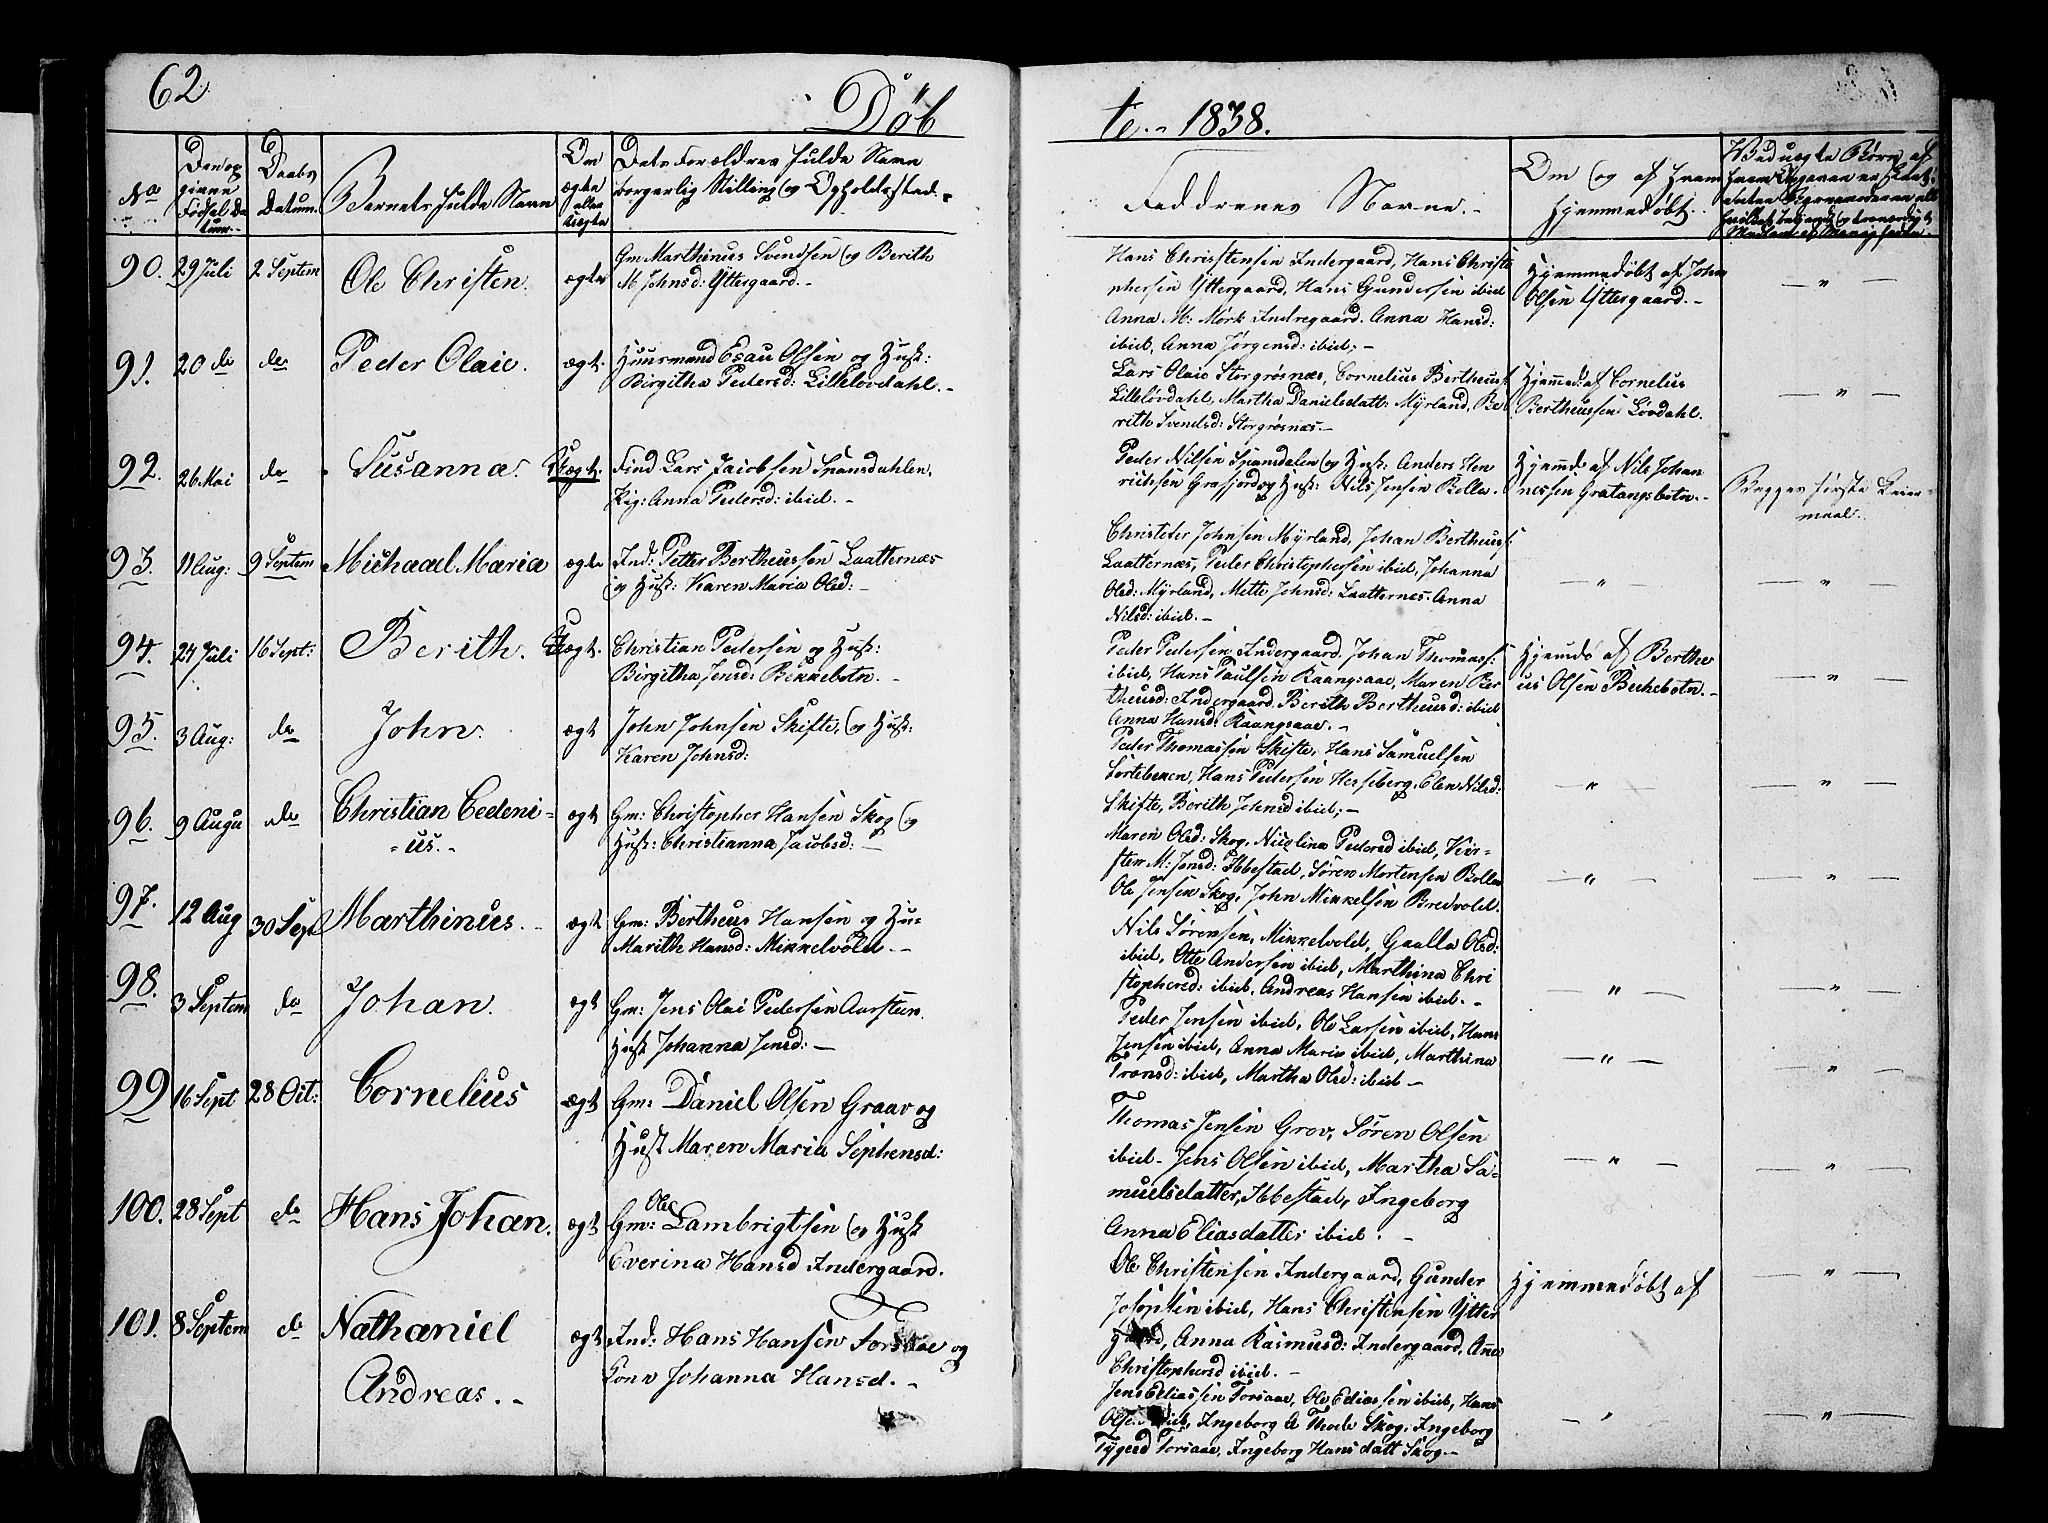 62
Døb
te. 1838.
No
Den opgivne Fødsels Datum
Daabs Datum
Barnets fulde Navn
Om ægte eller uægte
Dets Forældres fulde Navn borgerlig Stilling og Opholdssted.
Faddrenes Navne.
Om og af hvem Hjemmedøbt.
Ved uægte Børn af
90. 29 Juli 2 Septem Ole Christen. ægte
Gm Marthinus Svendsen og Berith
M Johnsd: Yttergaard.
Hans Christensen Indergaard, Hans Christo
phersen Yttergaard, Hans Gundersen ibid
Anna M: Mørk Indregaard. Anna Hansd:
ibid, Anna Jørgensd: ibid;
Hjemmedøbt af John
Olsen Yttergaard.
91. 20 do do Peder Olaie. ægt.
Huusmand Esau Olsen og Hust:
Birgitha Pedersd: Lilleløvdahl.
Lars Olaie Storgrøsnæs, Cornelius Bertheuss:
Lilleløvdahl, Martha Danielsdatt: Myrland, Be
rith Svendsd: Storgrøsnæs.
Hjemmed: af Cornelius
Bertheussen Løvdahl.
92. 26 Mai do Susanna. Uægt.
Find Lars Jacobsen Spansdahlen,
Pig: Anna Pedersd: ibid.
Peder Nilsen Spansdalen og Hust: Anders Hen
richsen Grafjord og Hust: Nils Jensen Bolla.
Hjemmd: af Nils Johan
nessen Gratangsbotn.
Begges første Leier
maal.
93. 11 Aug: 9 Septem Michael Maria ægte
Ind: Petter Bertheussen Laatternæs
og Hust: Karen Maria Olsd:
Christofer Johnsen Myrland, Johan Bertheuss:
Laatternæs, Peder Christophersen ibid, Johanna
Olsd: Myrland, Mette Johnsd: Laatternes. Anna
Nilsd: ibid.
94. 24 Juli 16 Sept: Berith. Uægt.
Christian Pedersen og Hust:
Birgitha Jensd: Bekkebotn.
Peder Pedersen Indergaard. Johan Thomass:
ibid, Hans Paulsen Kaangsaae, Maren Ber
theusd: Indergaard. Berith Bertheusd: ibid
Anna Hansd: Kaangsaae.
Hjemmd: af Berthe
us Olsen Bechebotn.
95. 3 Aug: do John. ægt
John Johnsen Skifte, og Hust:
Karen Johnsd:
Peder Thomassen Skifte, Hans Samuelsen
Sørteberen, Hans Pedersen Hesseberg. Elen Nilsd:
Skifte, Berith Johnsd ibid;
96. 9 Augu do Christian Cedeni-
us. ægt
Gm: Christopher Hansen Skog og
Hust: Christianna Jacobsd:
Maren Olsd: Skog, Nicolina Pedersd ibid, Kir-
sten M: Jonsd: Ibbestad, Søren Mortensen Bolla
Ole Jensen Skog, John Mikkelsen Bredvold.
97. 12 Aug 30 Sept Marthinus. ægt
Gm: Bertheus Hansen og Hu-
Marith Hansd: Mikkelvold.
Nils Sørensen, Mikkelvold, Gaalla Olsd:
ibid, Otte Andersen ibid, Marthina Chri
stophersd: ibid, Andreas Hansen ibid.
98. 3 Septem do Johan. ægt
Gm: Jens Olai Pedersen Aarsteen
Hust Johanna Jensd:
Peder Jensen ibid, Ole Larsen ibid, Hans
Jensen ibid, Anna Maria ibid, Marthina
Tronsd: ibid, Martha Olsd: ibid
99 16 Sept 28 Oct: Cornelius ægt
Gm: Daniel Olsen Graav og
Hust Maren Maria Sephensd:
Thomas Jensen Grov, Søren Olsen
ibid. Jens Olsen ibid, Martha Sa-
muelsdatter, Ibbestad, Ingeborg
Anna Eliasdatter ibid.
100. 28 Sept do Hans Johan. ægt
Gm: Ole Lambrigtsen og Hust
Everina Hansd Indergaard.
Ole Christensen Indergaard, Gunder
Josephsen ibid, Hans Christensen Ytter
gaard, Anna Rasmusd: Indergaard, Ane
Christophersd ibid.
Hjemmedøbt af
101. 8 Septem do Nathaniel
Andreas. ægt
Ind: Hans Hansen Forsaae og
Kone Johanna Hansd.
Jens Eliassen Forsaae, Ole Eliassen ibid, Hans
Olsen ibid, Ingeborg A Thode Skog, Ingeborg
Forsaae, Ingeborg Hansdatt Skog.